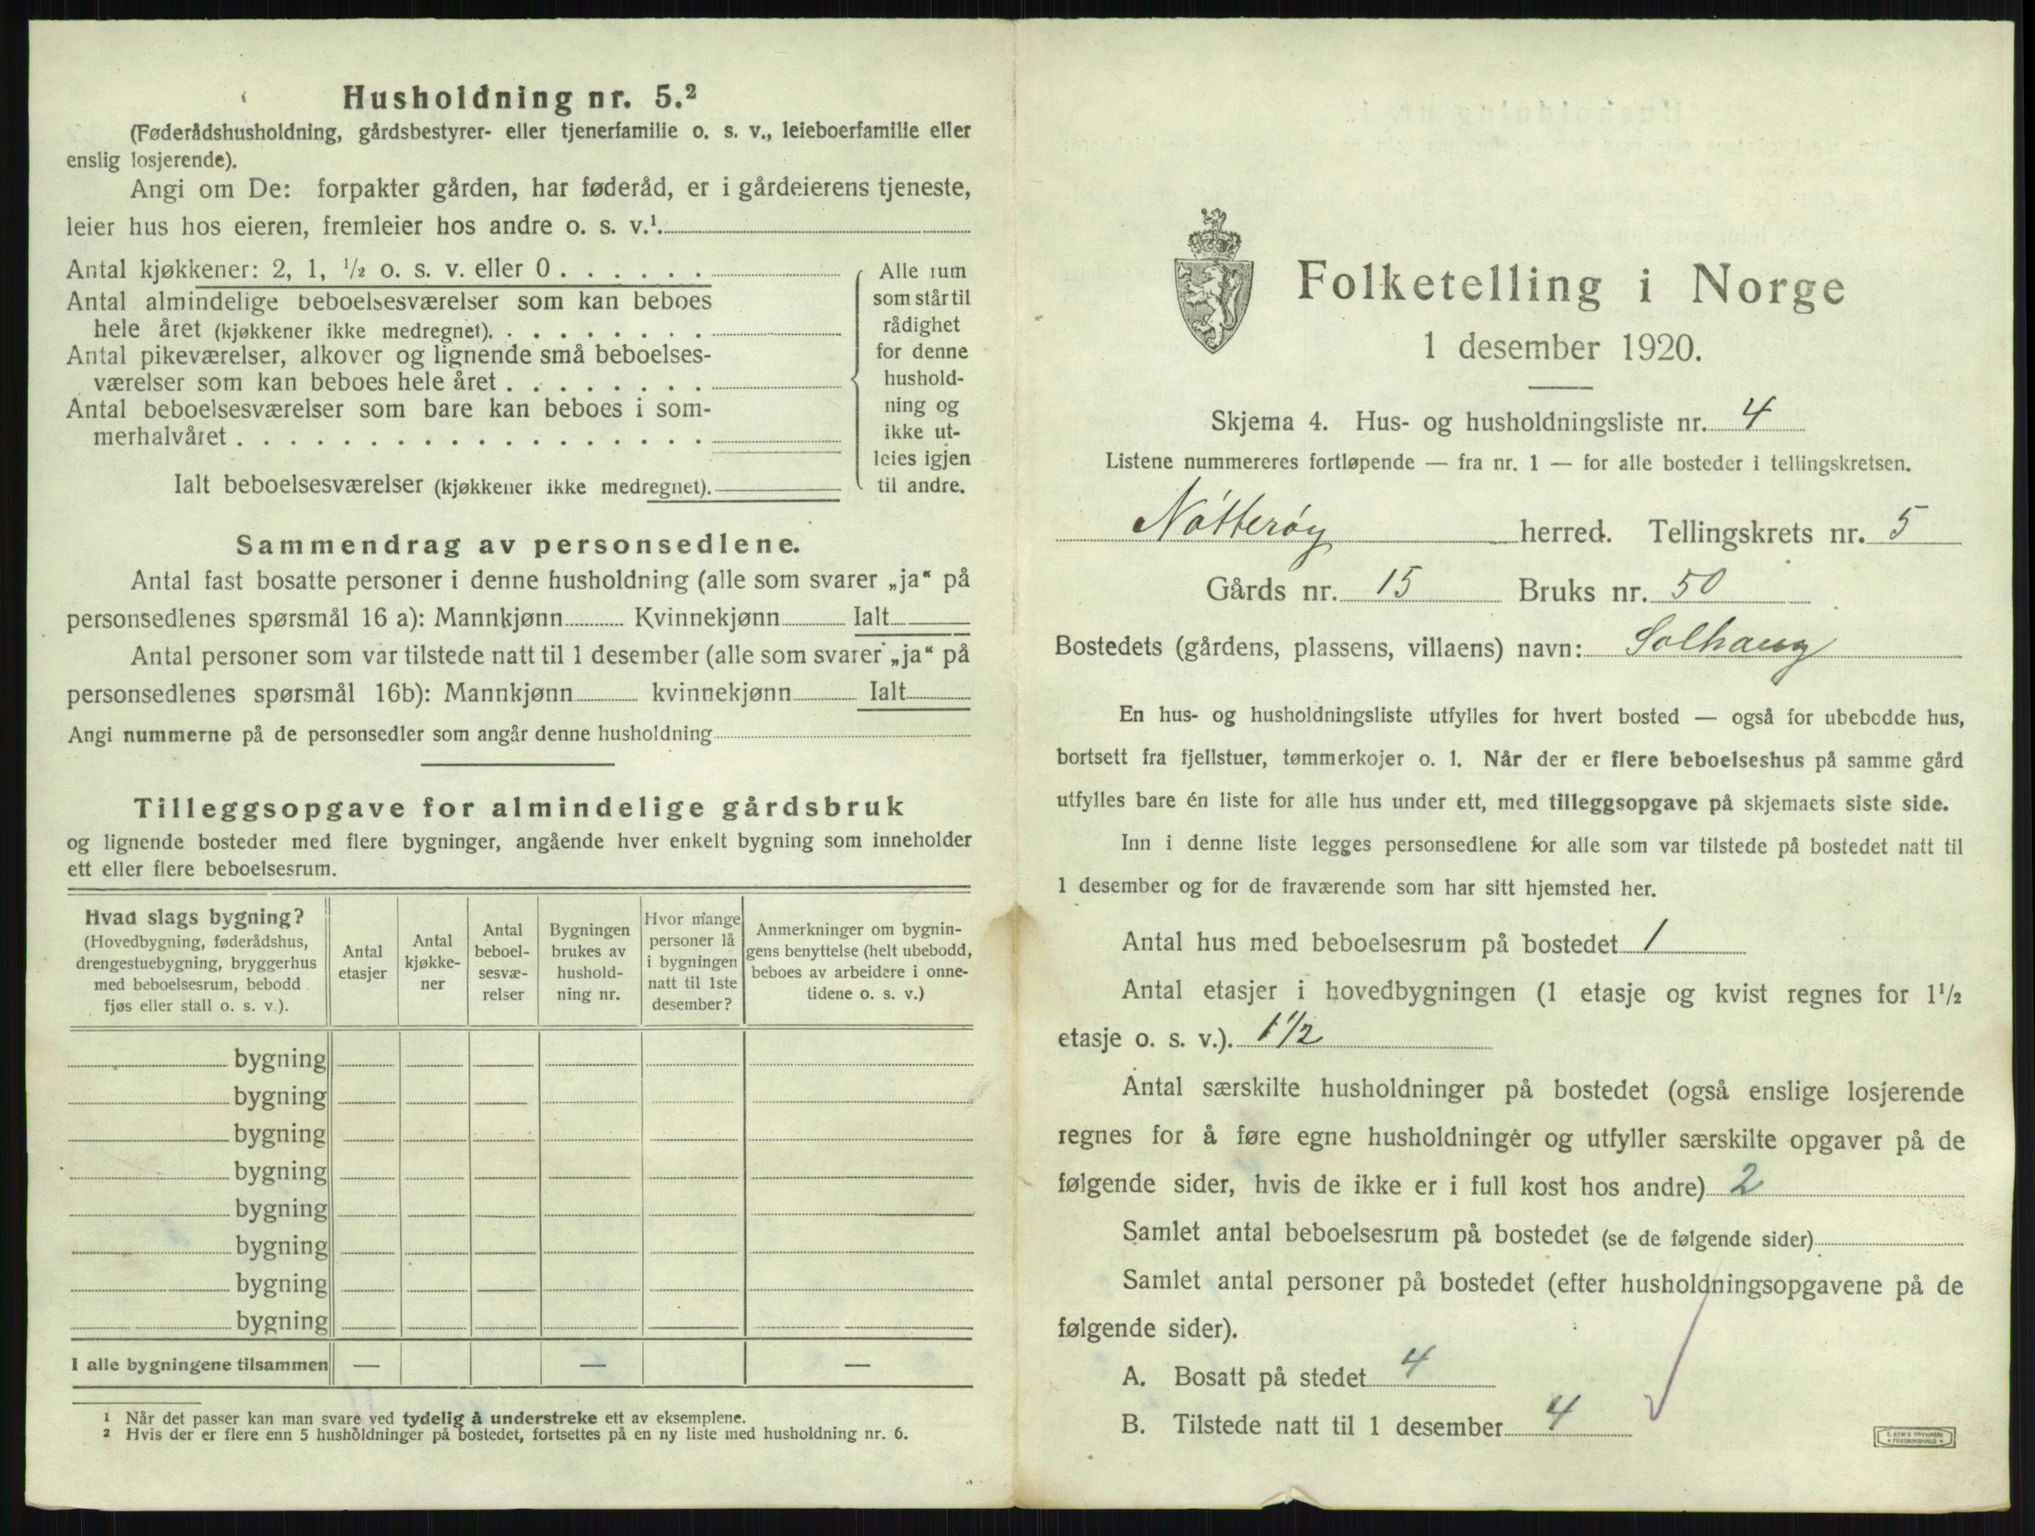 Husholdning nr. 5.²
(Føderådshusholdning, gårdsbestyrer- eller tjenerfamilie o. s. v., leieboerfamilie eller
enslig losjerende).
Angi om De: forpakter gården, har føderåd, er i gårdeierens tjeneste,
leier hus hos eieren, fremleier hos andre o. s. v.¹.
Antal kjøkkener: 2, 1, ½ o. s. v. eller 0 . . . . . .
Antal almindelige beboelsesværelser som kan beboes
hele året (kjøkkener ikke medregnet). . . . . . . . .
Antal pikeværelser, alkover og lignende små beboelses-
værelser som kan beboes hele året . . . . . . . .
Antal beboelsesværelser som bare kan beboes i som-
merhalvåret . . . . . . . . . . . . . . . . . .
Ialt beboelsesværelser (kjøkkener ikke medregnet).
Alle rum
som står til
rådighet
for denne
hushold-
ning og
ikke ut-
leies igjen
til andre.
Sammendrag av personsedlene.
Antal fast bosatte personer i denne husholdning (alle som svarer „ja“ på
personsedlenes spørsmål 16 a): Mannkjønn Kvinnekjønn Ialt
Antal personer som var tilstede natt til 1 desember (alle som svarer „ja“ på
personsedlenes spørsmål 16b): Mannkjønn kvinnekjønn Ialt
Angi nummerne på de personsedler som angår denne husholdning
Tilleggsopgave for almindelige gårdsbruk
og lignende bosteder med flere bygninger, angående hver enkelt bygning som inneholder
ett eller flere beboelsesrum.
Hvad slags bygning?
(Hovedbygning, føderådshus,
drengestuebygning, bryggerhus
med beboelsesrum, bebodd
fjøs eller stall o. s. v.).
Antal
etasjer
Antal
kjøkke-
ner
Antal
beboel-
sesvæ-
relser
Bygningen
brukes av
hushold-
ning nr.
Hvor mange
personer lå
i bygningen
natt til 1ste
desember?
Anmerkninger om bygnin-
gens benyttelse (helt ubebodd,
beboes av arbeidere i onne-
tidene o. s. v.)
bygning
bygning
bygning
bygning
bygning
bygning
bygning
bygning
I alle bygningene tilsammen — — —
¹ Når det passer kan man svare ved tydelig å understreke ett av eksemplene.
² Hvis der er flere enn 5 husholdninger på bostedet, fortsettes på en ny liste med husholdning nr. 6.
Folketelling i Norge
1 desember 1920.
Skjema 4. Hus- og husholdningsliste nr. 4
Listene nummereres fortløpende — fra nr. 1 — for alle bosteder i tellingskretsen.
Nøtterøy herred. Tellingskrets nr. 5
Gårds nr. 15 Bruks nr. 50
Bostedets (gårdens, plassens, villaens) navn: Solhaug
En hus- og husholdningsliste utfylles for hvert bosted — også for ubebodde hus,
bortsett fra fjellstuer, tømmerkojer o. l. Når der er flere beboelseshus på samme gård
utfylles bare én liste for alle hus under ett, med tilleggsopgave på skjemaets siste side.
Inn i denne liste legges personsedlene for alle som var tilstede på bostedet natt til
1 desember og for de fraværende som har sitt hjemsted her.
Antal hus med beboelsesrum på bostedet 1
Antal etasjer i hovedbygningen (1 etasje og kvist regnes for 1½
etasje o. s. v.). 1½
Antal særskilte husholdninger på bostedet (også enslige losjerende
regnes for å føre egne husholdninger og utfyller særskilte opgaver på de
følgende sider, hvis de ikke er i full kost hos andre) 2
Samlet antal beboelsesrum på bostedet (se de følgende sider)
Samlet antal personer på bostedet (efter husholdningsopgavene på de
følgende sider).
A. Bosatt på stedet 4
B. Tilstede natt til 1 desember 4